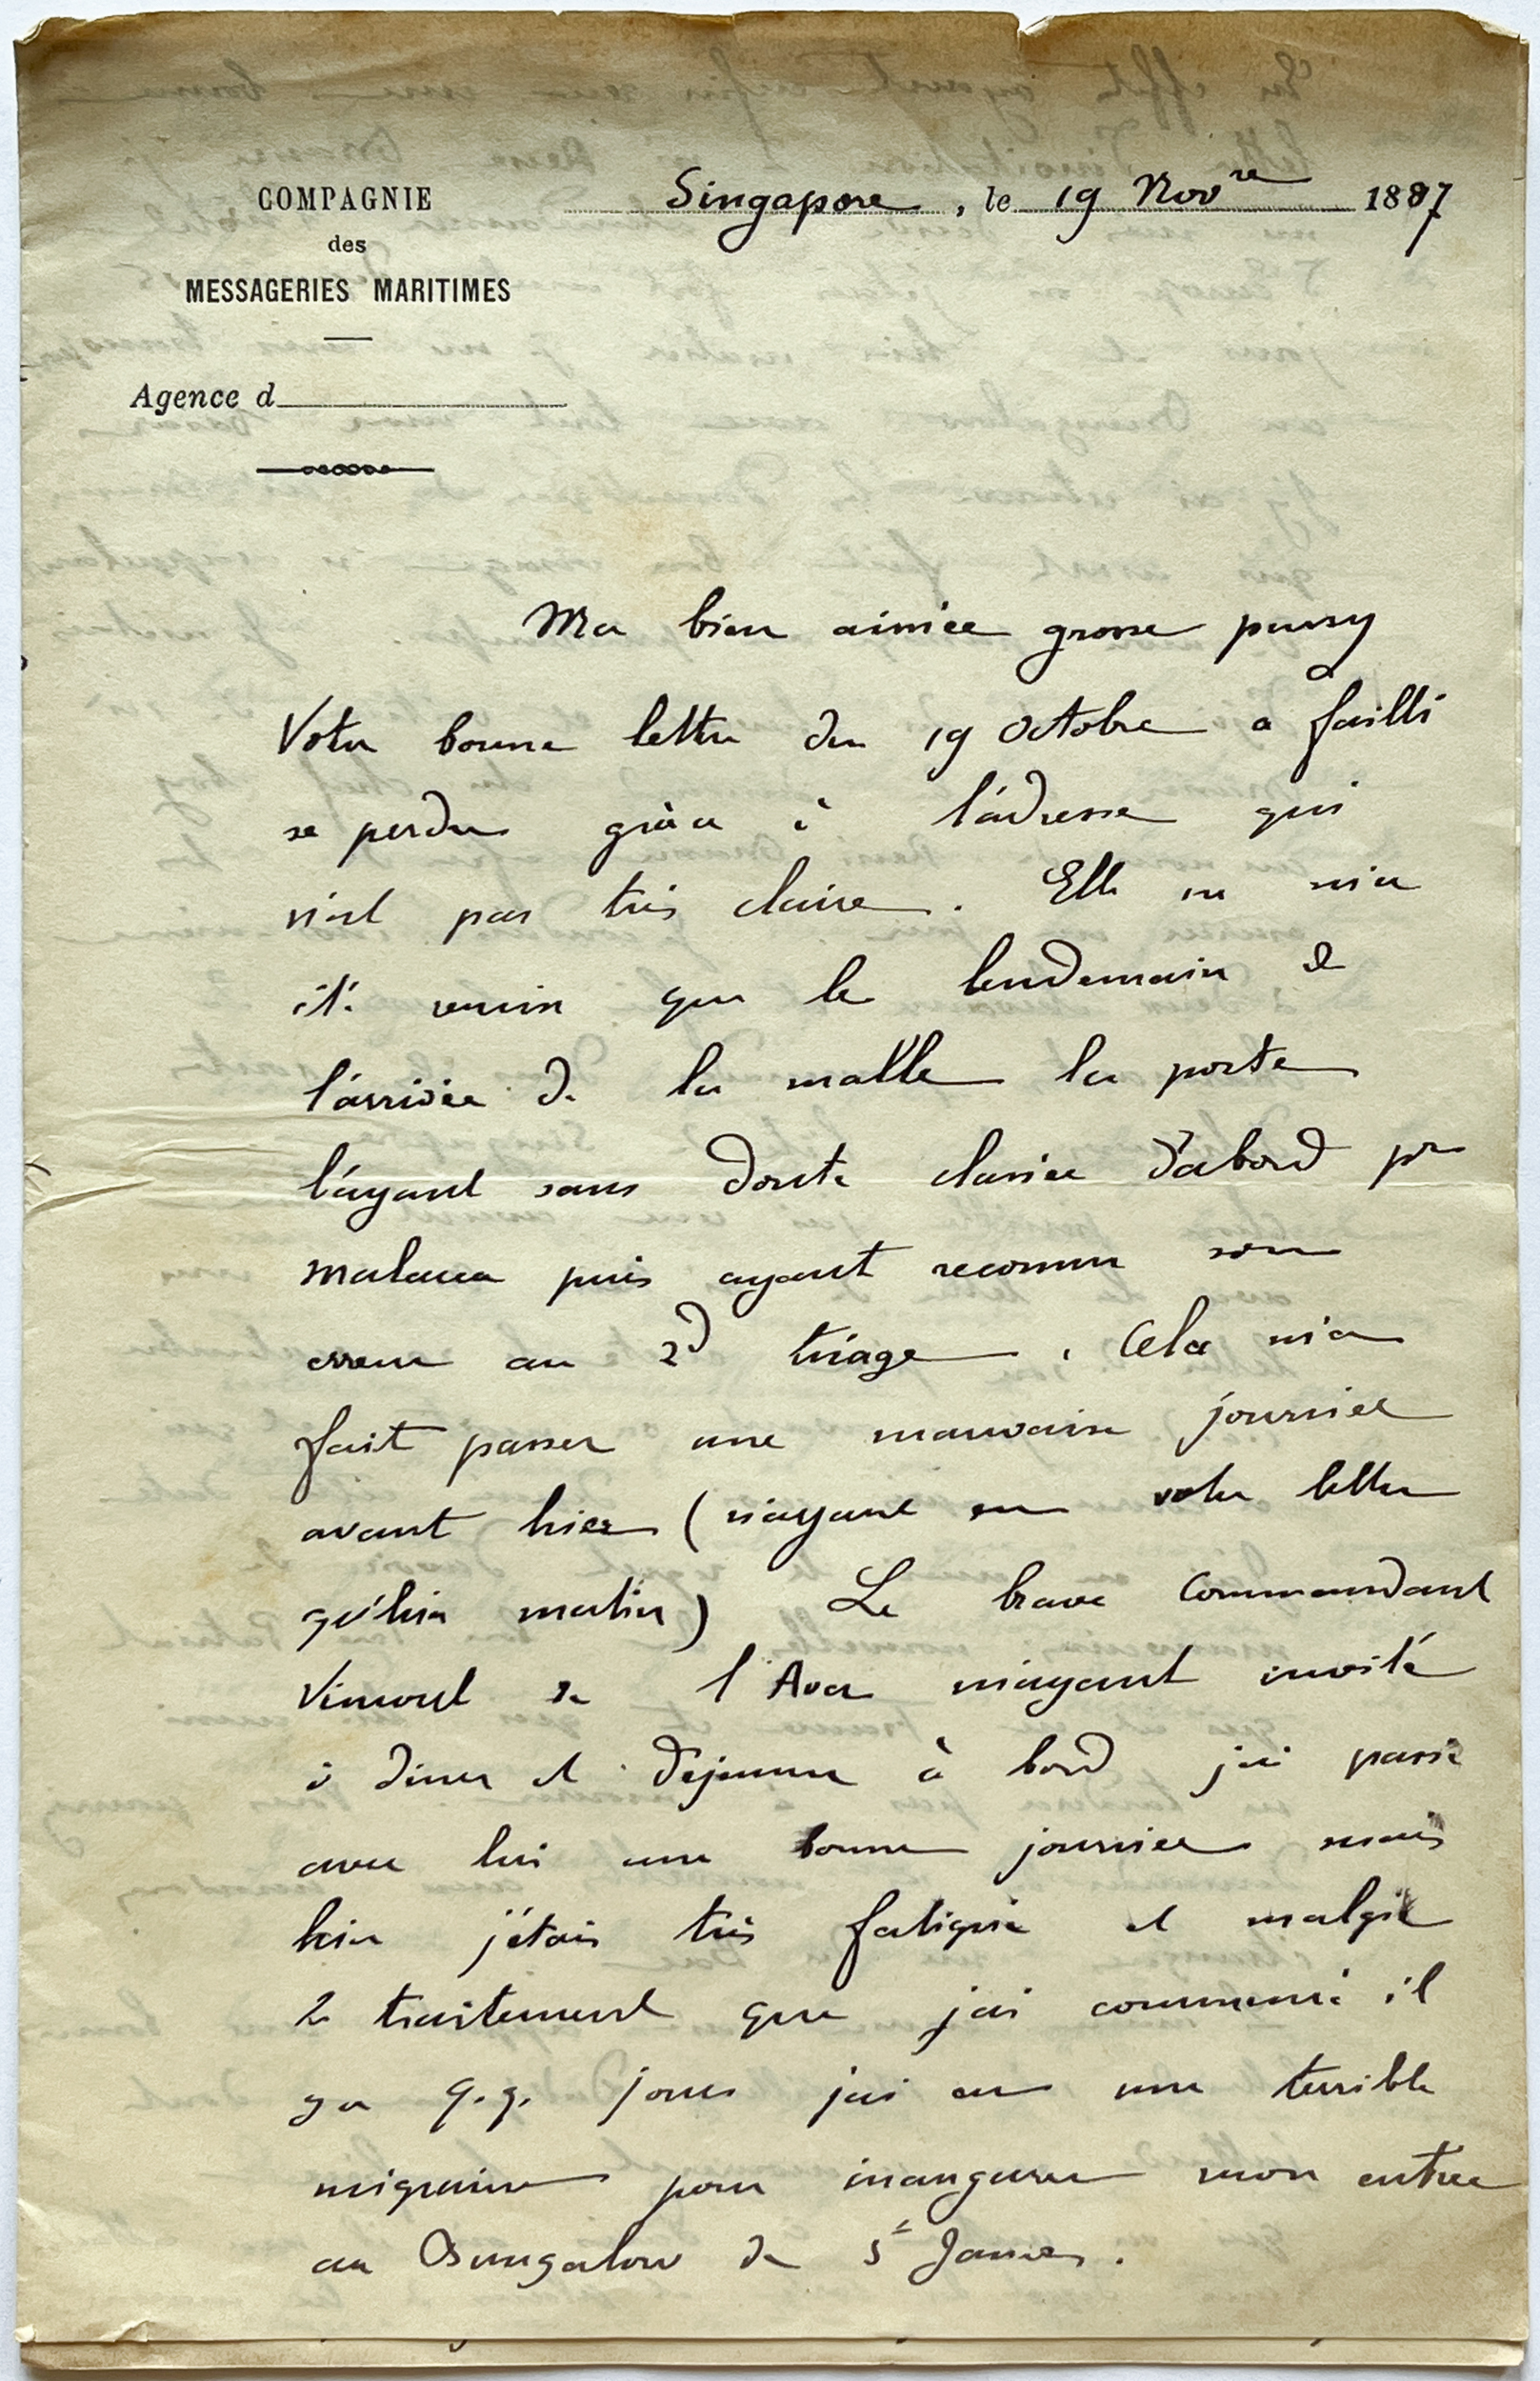 COMPAGNIE
des
MESSAGERIES MARITIMES
Agence d
Singapore, le 19 Novre 1887
Ma bien aimée grosse pussy
Votre bonne lettre du 19 octobre a failli
se perdre grâce à l'adresse qui
n'est pas très claire. Elle ne m'a
été remise que le lendemain de
l'arrivée de la malle la poste
l'ayant sans doute classée d'abord pr
Malacca puis ayant reconnu son
erreur au 2d triage. Cela m'a
fait passer une mauvaise journée
avant hier (n'ayant eu votre lettre
qu'hier matin) Le brave Commandant
de l'Ava m'ayant invité
à diner et déjeuner à bord j'ai passé
avec lui une bonne journée mais
hier j'étais très fatigué et malgré
le traitement que j'ai commencé il
y a q.q. jours j'ai eu une terrible
migraine pour inaugurer mon entrée
au Bungalow de St James.